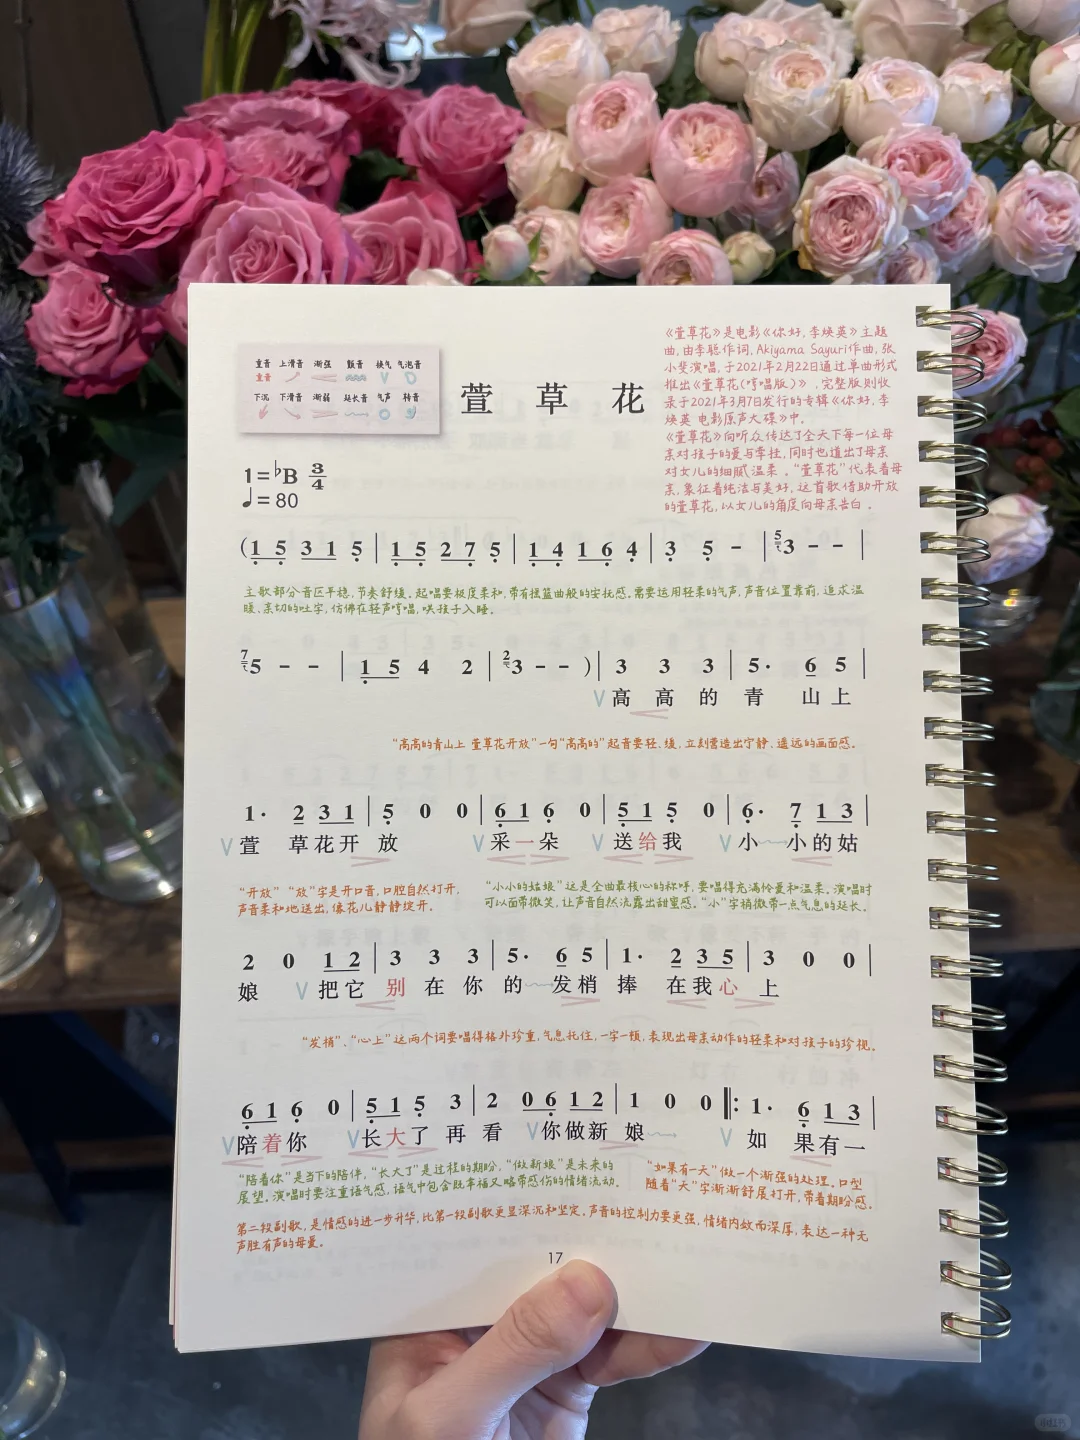 重音 上滑音 渐强 颤音 换气 气泡音
重音
下沉 下滑音 渐弱 延长音 气声 转音
萱草花
《萱草花》是电影《你好,李焕英》主题
曲,由李聪作词,Akiyama Sayuri作曲,张
小斐演唱,于2021年2月22日通过单曲形式
推出《萱草花(哼唱版)》,完整版则收
录于2021年3月7日发行的专辑《你好,李
焕英 电影原声大碟》中。
《萱草花》向听众传达了全天下每一位母
亲对孩子的爱与牵挂,同时也道出了母亲
对女儿的细腻温柔。“萱草花”代表着母
亲,象征着纯洁与美好,这首歌借助开放
的萱草花,以女儿的角度向母亲告白。
1=♭B 3/4
♩=80
(1 5 3 1 5 | 1 5 2 7 5 | 1 4 1 6 4 | 3 5 - | 5 3 - - |
主歌部分音区平稳,节奏舒缓。起唱要极度柔和,带有摇篮曲般的安抚感。需要运用轻柔的气声,声音位置靠前,追求温
暖、亲切的吐字,仿佛在轻声哼唱,哄孩子入睡。
7 5 - - | 1 5 4 2 | 2 3 - - ) | 3 3 3 | 5· 6 5 |
V高 高 的 青 山 上
“高高的青山上 萱草花开放”一句“高高的”起音要轻、缓,立刻营造出宁静、遥远的画面感。
1· 2 3 1 | 5 0 0 | 6 1 6 0 | 5 1 5 0 | 6· 7 1 3 |
V萱 草花开 放 V采一朵 V送给我 V小 小的姑
“开放” “放”字是开口音,口腔自然打开,
声音柔和地送出,像花儿静静绽开。
“小小的姑娘”这是全曲最核心的称呼,要唱得充满怜爱和温柔。演唱时
可以面带微笑,让声音自然流露出甜蜜感。“小”字稍微带一点气息的延长。
2 0 1 2 | 3 3 3 | 5· 6 5 | 1· 2 3 5 | 3 0 0 |
娘 V把它 别 在 你 的 发梢 捧 在我心 上
“发梢”、“心上”这两个词要唱得格外珍重,气息托住,一字一顿,表现出母亲动作的轻柔和对孩子的珍视。
6 1 6 0 | 5 1 5 3 | 2 0 6 1 2 | 1 0 0 ‖: 1· 6 1 3 |
V陪着你 V长大了 再 看 V你做新 娘 V 如 果有一
“陪着你”是当下的陪伴,“长大了”是过程的期盼,“做新娘”是未来的
展望。演唱时要注重语气感,语气中包含既幸福又略带感伤的情绪流动。
“如果有一天”做一个渐强的处理。口型
随着“天”字渐渐舒展打开,带着期盼感。
第二段副歌,是情感的进一步升华,比第一段副歌更显深沉和坚定。声音的控制力要更强,情绪内敛而深厚,表达一种无
声胜有声的母爱。
17